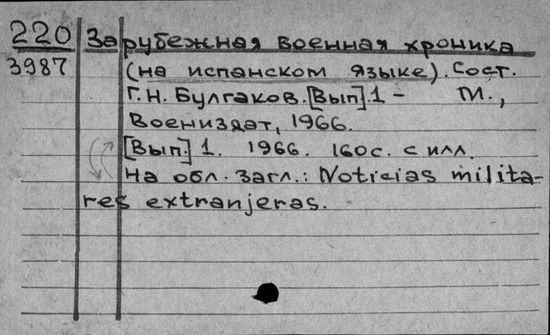 220 Зарубежная военная хроника
3987 (на испанском языке). Сост.
Г.Н. Булгаков. [Вып] 1 - М.,
Воениздат, 1966.
[Вып.] 1. 1966. 160с. с илл.
На обл. загл.: Noticias milita-
res extranjeras.